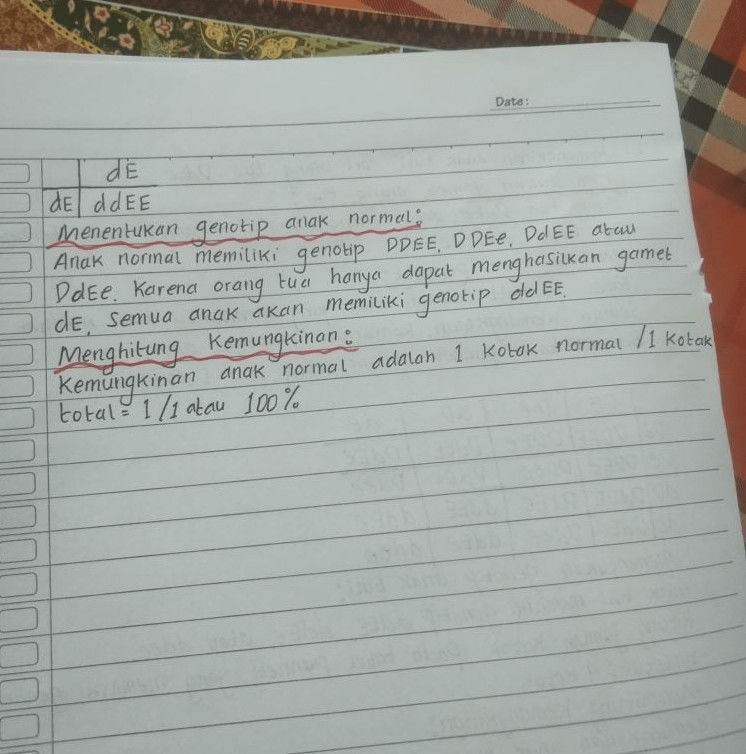 Date:
dE
dE ddEE
Menentukan genotip anak normal:
Anak normal memiliki genotip DDEE, DDEe, DdEE atau
DdEe. Karena orang tua hanya dapat menghasilkan gamet
dE, semua anak akan memiliki genotip ddEE.
Menghitung Kemungkinan:
Kemungkinan anak normal adalah 1 Kotak normal /1 Kotak
total = 1/1 atau 100%